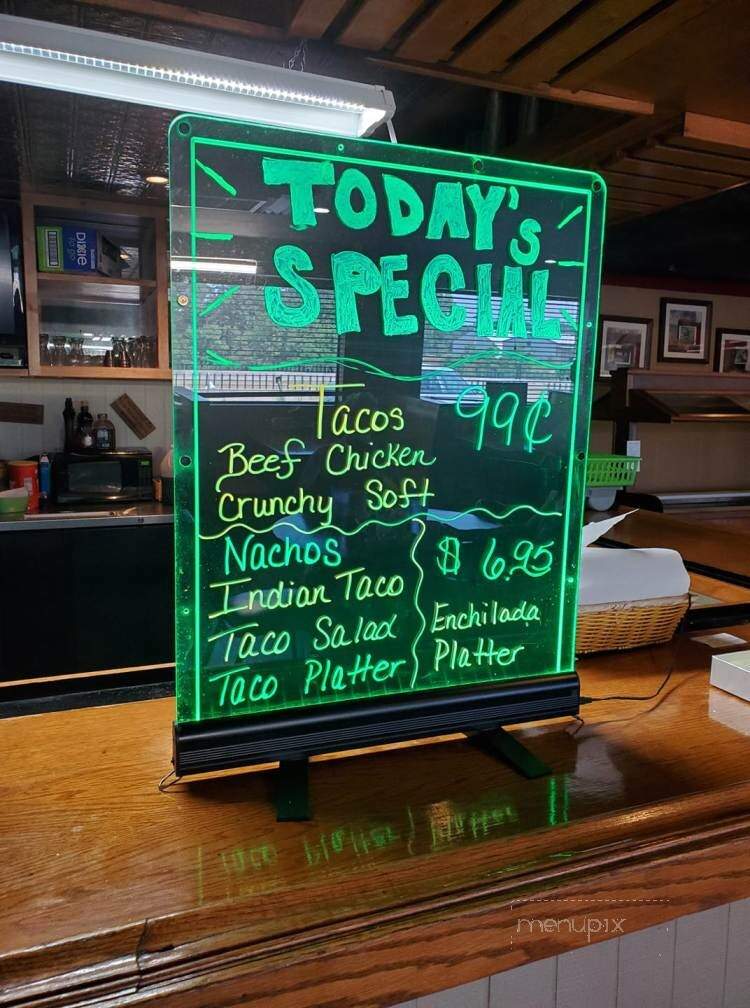 TODAY'S
SPECIAL
Tacos 99¢
Beef Chicken
Crunchy Soft
Nachos
Indian Taco
Taco Salad
Taco Platter
$ 6.95
Enchilada
Platter
DIXIE
to go
menupix